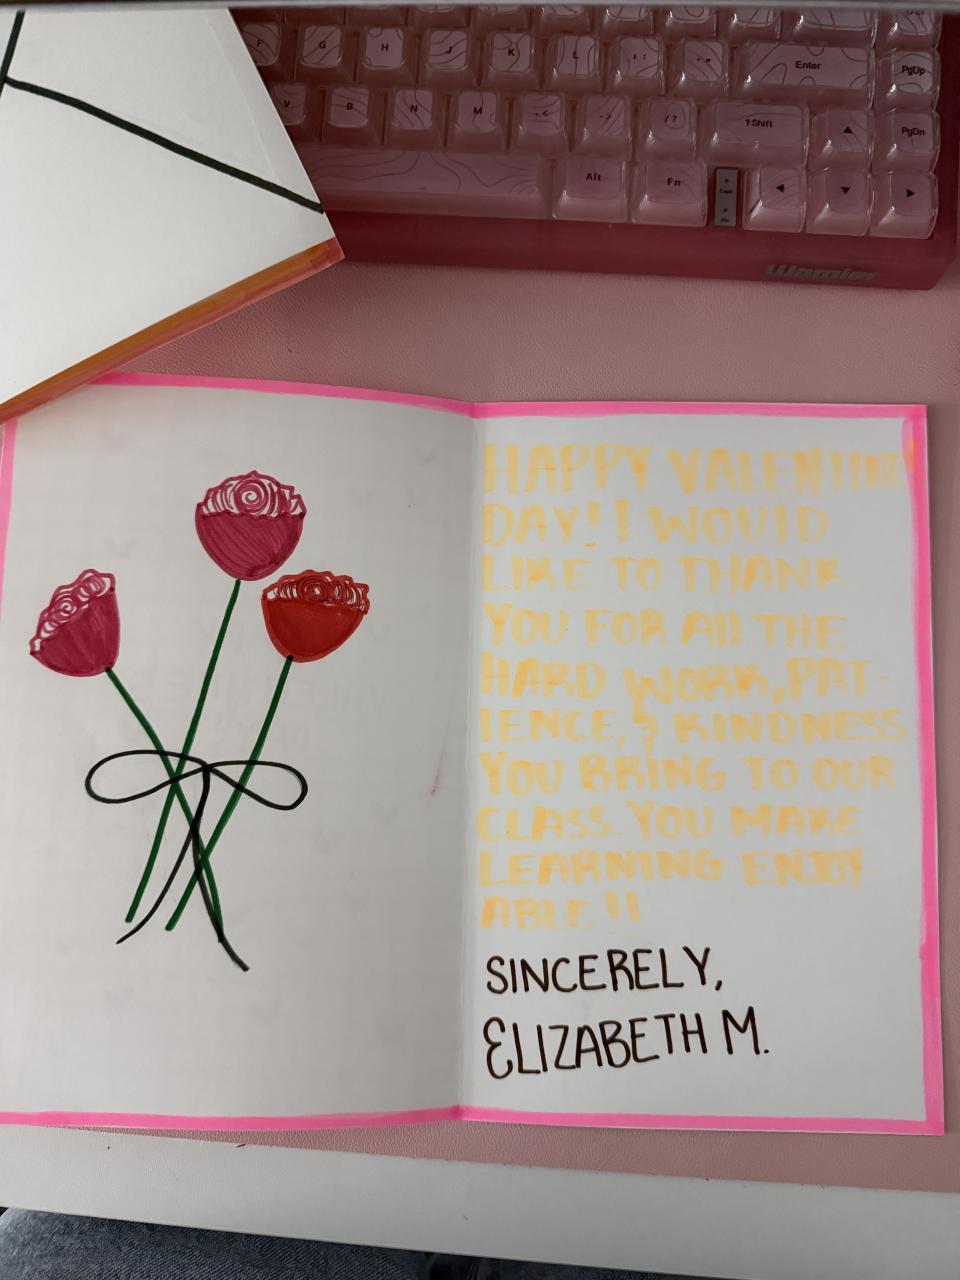 F G H J K L : ; " ' Enter PgUp
V B N M , < . > / ? ↑Shift ▲ PgDn
Alt Fn ◄ ▼ ►
Womier
HAPPY VALENTINE
DAY! I WOULD
LIKE TO THANK
YOU FOR All THE
HARD WORK, PAT-
IENCE, & KINDNESS
YOU BRING TO OUR
CLASS. YOU MAKE
LEARNING ENJOY
ABLE!!
SINCERELY,
ELIZABETH M.